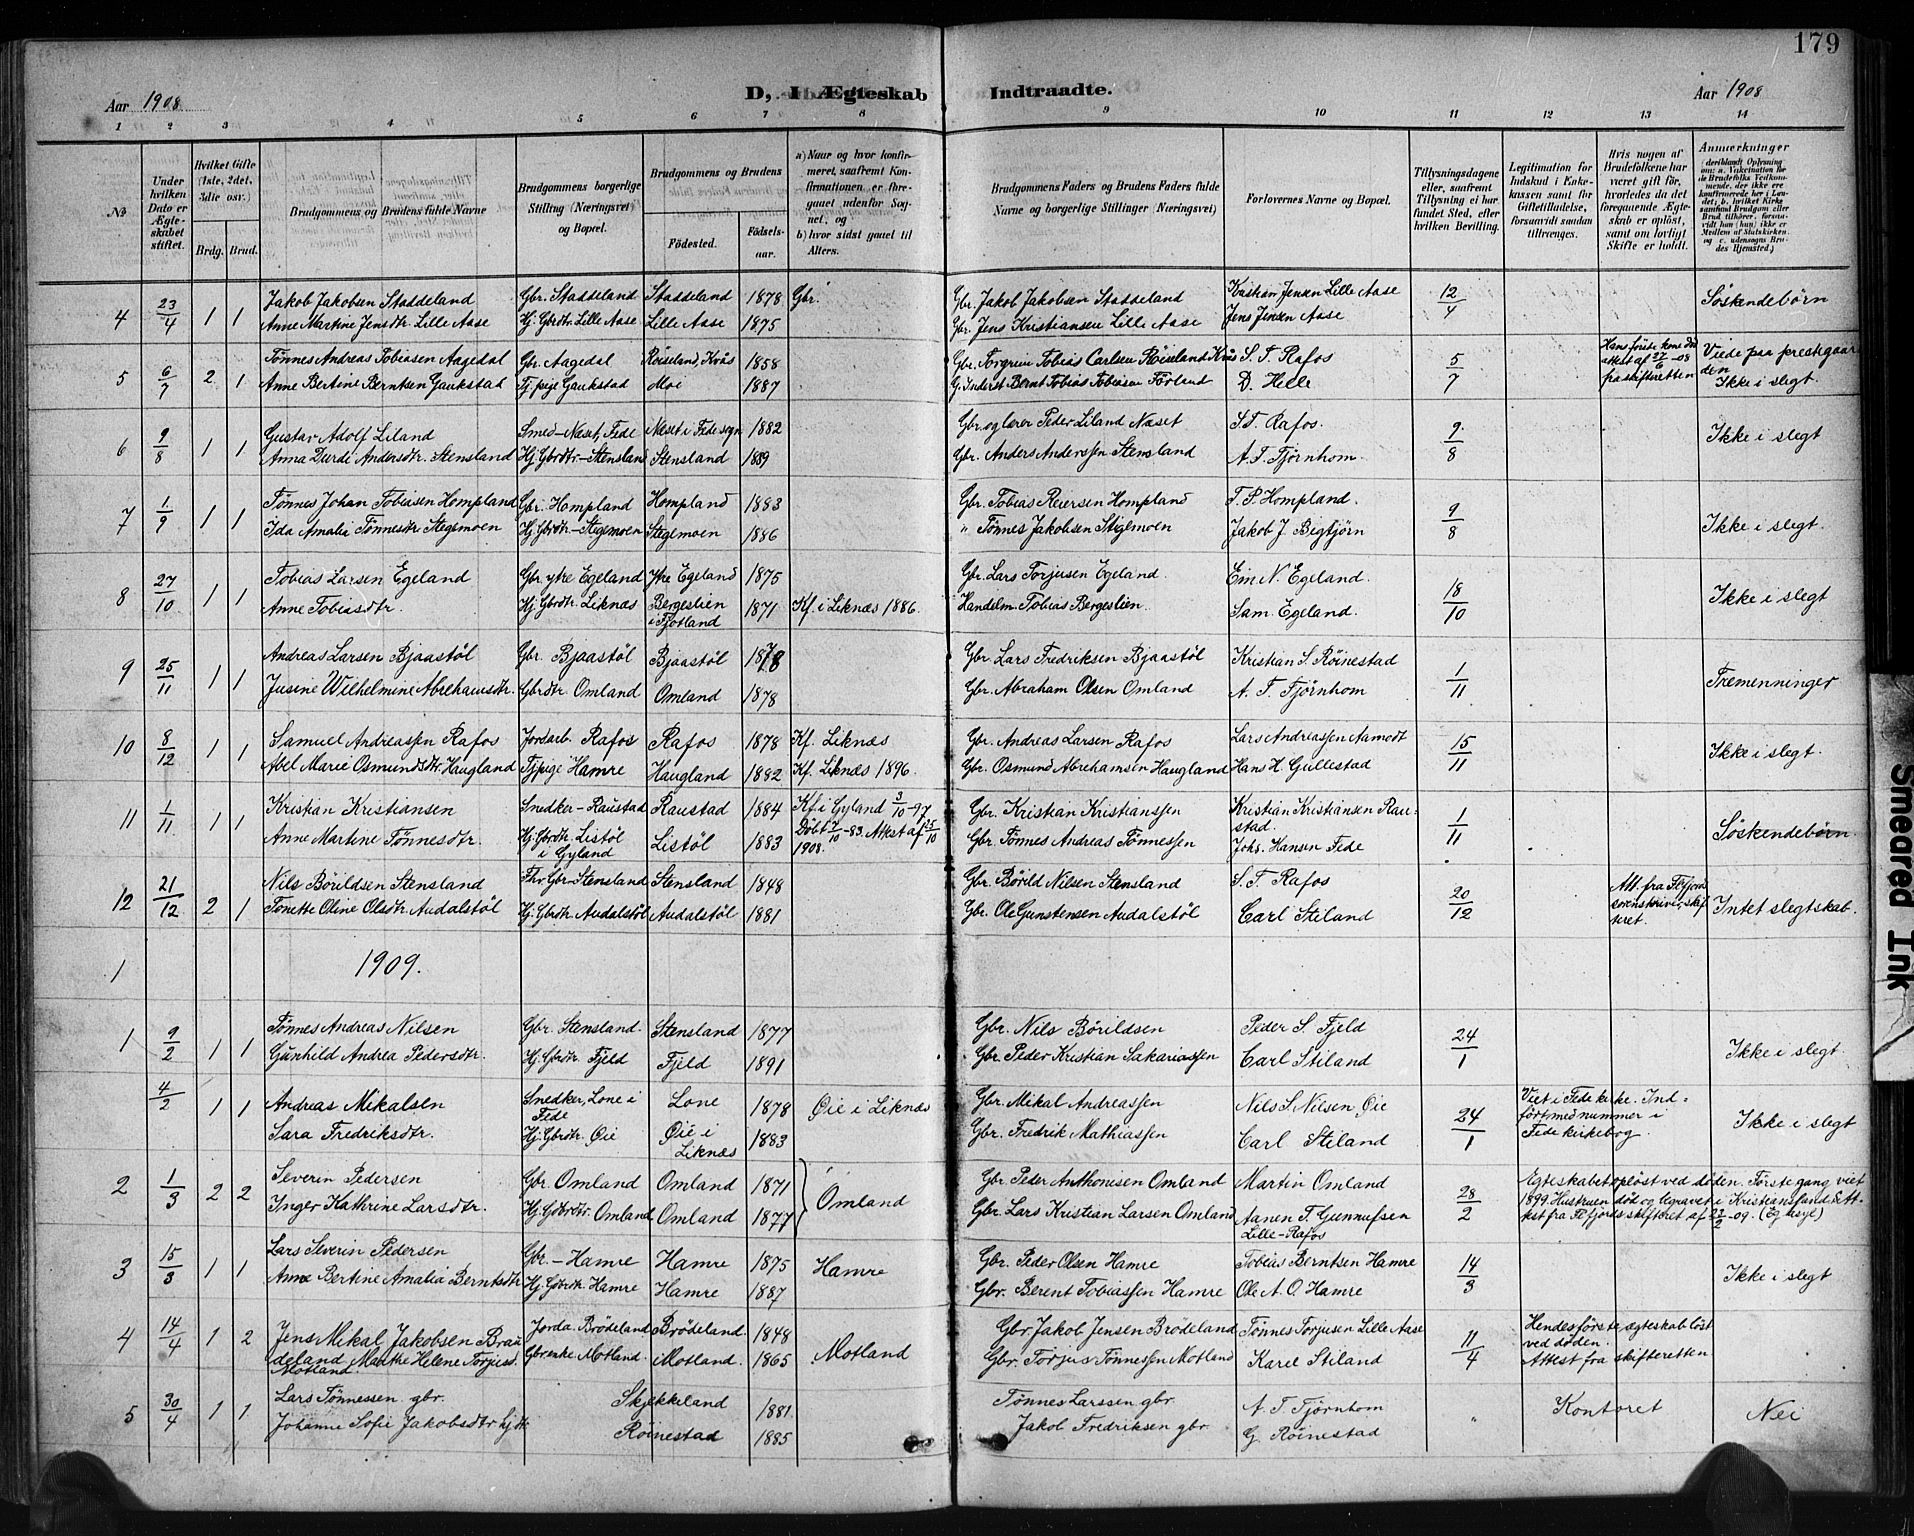 179
Aar 1908
D, I Ægteskab Indtraadte.
Aar 1908
1 2 3 4 5 6 7 8 9 10 11 12 13 14
No
Under hvilken Dato er Ægteskabet stiftet.
Hvilket Gifte (1ste, 2det, 3die osv.)
Brdg. Brud.
Brudgommens og Brudens fulde Navne
Brudgommens borgerlige Stilling (Næringsvei) og Bopæl.
Brudgommens og Brudens
Fødested.
Fødselsaar.
a) Naar og hvor konfirmeret, saafremt Konfirmationen er foregaaet udenfor Sognet, og
b) hvor sidst gaaet til Alters.
Brudgommens Faders og Brudens Faders fulde Navne og borgerlige Stillinger (Næringsvei)
Forlovernes Navne og Bopæl.
Tillysningsdagene eller, saafremt Tillysning ei har fundet Sted, efter hvilken Bevilling.
Legitimation for Indskud i Enkekassen samt for Giftetilladelse, forsaavidt saadan tiltrænges.
Hvis nogen af Brudefolkene har været gift før, hvorledes da det foregaaende Ægteskab er opløst, samt om lovligt Skifte er holdt.
Anmerkninger
4 23/4 1 1 Jakob Jakobsen Staddeland Gbr. Staddeland Staddeland 1878 Gbr. Gbr. Jakob Jakobsen Staddeland Kristian Jensen Lille Aase 12/4 Söskendebörn
Anne Martine Jensdtr. Lille Aase Hj. Gbrdtr. Lille Aase Lille Aase 1875 Gbr. Jens Kristiansen Lille Aase Jens Jensen Aase
5 6/7 2 1 Tönnes Andreas Tobiasen Aagedal Gbr. Aagedal Röiseland, Kvås 1858 Gbr. Torgrim Tobias Carlsen Röiseland Kvås S. T. Rafos 5/7 Hans förste kone död attest af 27/6 -08 fra skifteretten Viede paa prestegaarden
Anne Bertine Berntsen Gaukstad Tj. pige Gaukstad Moi 1887 G. Inderst Bernt Tobias Tobiasen Förland D. Helle Ikke i slegt.
6 9/8 1 1 Gustav Adolf Liland Smed - Næset, Fede Næset i Fede sogn 1882 Gbr. og lærer Peder Liland Næset S. T. Rafos. 9/8 Ikke i slegt
Anna Durdi Andersdtr. Stensland Hj. Gbrdtr - Stensland Stensland 1889 Gbr. Anders Anderssen Stensland A. T. Fjörnhom.
7 1/9 1 1 Tönnes Johan Tobiasen Hompland Gbr. Hompland Hompland 1883 Gbr. Tobias Reiersen Hompland T. P. Hompland. 9/8 Ikke i slegt.
Ida Amalia Tönnesdtr. Stegemoen Hj. Gbrdtr - Stegemoen Stegemoen 1886 " Tönnes Jakobsen Stegemoen Jakob J. Bigtjörn
8 27/10 1 1 Tobias Larsen Egeland Gbr. ytre Egeland Ytre Egeland 1875 Gbr. Lars Torjusen Egeland. Ein N. Egeland. 18/10 Ikke i slegt
Anne Tobiasdtr. Hj. Gbrdtr. Liknæs Bergeslien i Fjotland 1871 Kf. i Liknæs 1886. Handelm. Tobias Bergeslien. Sam. Egeland.
9 25/11 1 1 Andreas Larsen Bjaastöl Gbr. Bjaastöl Bjaastöl 1878 Gbr. Lars Fredriksen Bjaastöl Kristian S. Röinestad 1/11 Tremenninger
Jusine Wilhelmine Abrehamsdtr. Gbrdtr. Omland Omland 1878 Gbr. Abraham Olsen Omland A. T. Fjörnhom
10 8/12 1 1 Samuel Andreassen Rafos Jordarb. Rafos Rafos 1878 Kf. Liknæs Gbr. Andreas Larsen Rafos Lars Andreassen Aamodt 15/11 Ikke i slegt.
Abel Marie Osmundsdtr. Haugland Tj. pige Hamre Haugland 1882 Kf. Liknæs 1896. Gbr. Osmund Abrehamsen Haugland Hans H. Gullestad
11 1/11 1 1 Kristian Kristiansen Snedker - Raustad Raustad 1884 Kf. i Gyland 3/10 -97 Gbr. Kristian Kristianssen Kristian Kristiansen Raustad. 1/11 Söskendebörn.
Anne Martine Tönnesdtr. Hj. Gbrdtr. Listöl i Gyland Listöl 1883 Döbt 7/10 -83. Attest af 25/10 1908. Gbr. Tönnes Andreas Tönnessen Johs. Hansen Fede
12 21/12 2 1 Nils Börildsen Stensland Fhv Gbr Stensland Stensland 1848 Gbr. Börild Nilsen Stensland S. T. Rafos 20/12 Att. fra Fefjord sorenskriver, skifteret. Intet slegtskab.
Tonette Oline Olsdtr. Audalstöl Hj. Gbrdtr. Audalstöl Audalstöl 1881 Gbr. Ole Gunstensen Audalstöl Carl Stiland
1 1909.
1 9/2 1 1 Tönnes Andreas Nilsen Gbr. Stensland. Stensland 1877 Gbr. Nils Börildsen Peder S. Fjeld 24/1 Ikke i slegt.
Gunhild Andrea Pedersdtr. Hj. Gbrdtr. Fjeld Fjeld 1891 Gbr. Peder Kristian Sakariassen Carl Stiland
4/2 1 1 Andreas Mikalsen Snedker, Lone i Fede Lone 1878 Öie i Liknæs Gbr. Mikal Andreassen Nils S. Nilsen, Öie 24/1 Viet i Fede kirke. Indfört med nummer i Fede kirkebog. Ikke i slegt
Sara Fredriksdtr. Hj. Gbrdtr. Öie Öie i Liknæs 1883 Gbr. Fredrik Mathiassen Carl Stiland
2 1/3 2 2 Severin Pedersen Gbr. Omland Omland 1871 Omland Gbr. Peder Anthonisen Omland Martin Omland 28/2 Ægteskabet oplöst ved döden. Förste gang viet 1899. Hustruen död og begravet i Kristiansand
Inger Kathrine Larsdtr. Hj. Gbrdtr. Omland Omland 1877 Gbr. Lars Kristian Larsen Omland Aanen T. Gunnufsen Lille-Rafos Attest fra Fefjords skifteret af 23/2 -09.
3 15/3 1 1 Lars Severin Pedersen Gbr. - Hamre Hamre 1875 Hamre Gbr. Peder Olsen Hamre Tobias Berntsen Hamre 14/3 Ikke i slegt
Anne Bertine Amalia Berntsdtr. Hj. Gbrdtr. Hamre Hamre 1887 Gbr. Berent Tobiassen Hamre Ole A. O. Hamre
4 14/4 1 2 Jens Mikal Jakobsen Braudeland Jorda. Brödeland Brödeland. 1848 Motland Gbr. Jakob Jensen Brödeland Tönnes Torjusen Lille Aase 11/4 Hendes förste ægteskab löst ved döden.
Marthe Helene Torjusd. Motland. Gbrenke Motland. Motland. 1865 Gbr. Torjus Tönnessen Motland Karel Stiland Attest fra skifteretten
5 30/4 1 1 Lars Tönnessen gbr. Skjekkeland 1881 Tönnes Larssen gbr. A. T. Fjörnhom " Kontoret Nei
Johanne Sofie Jakobsdtr hjdtr Röinestad 1885 Jakob Fredriksen gbr. G. Röinestad
Smeared Ink